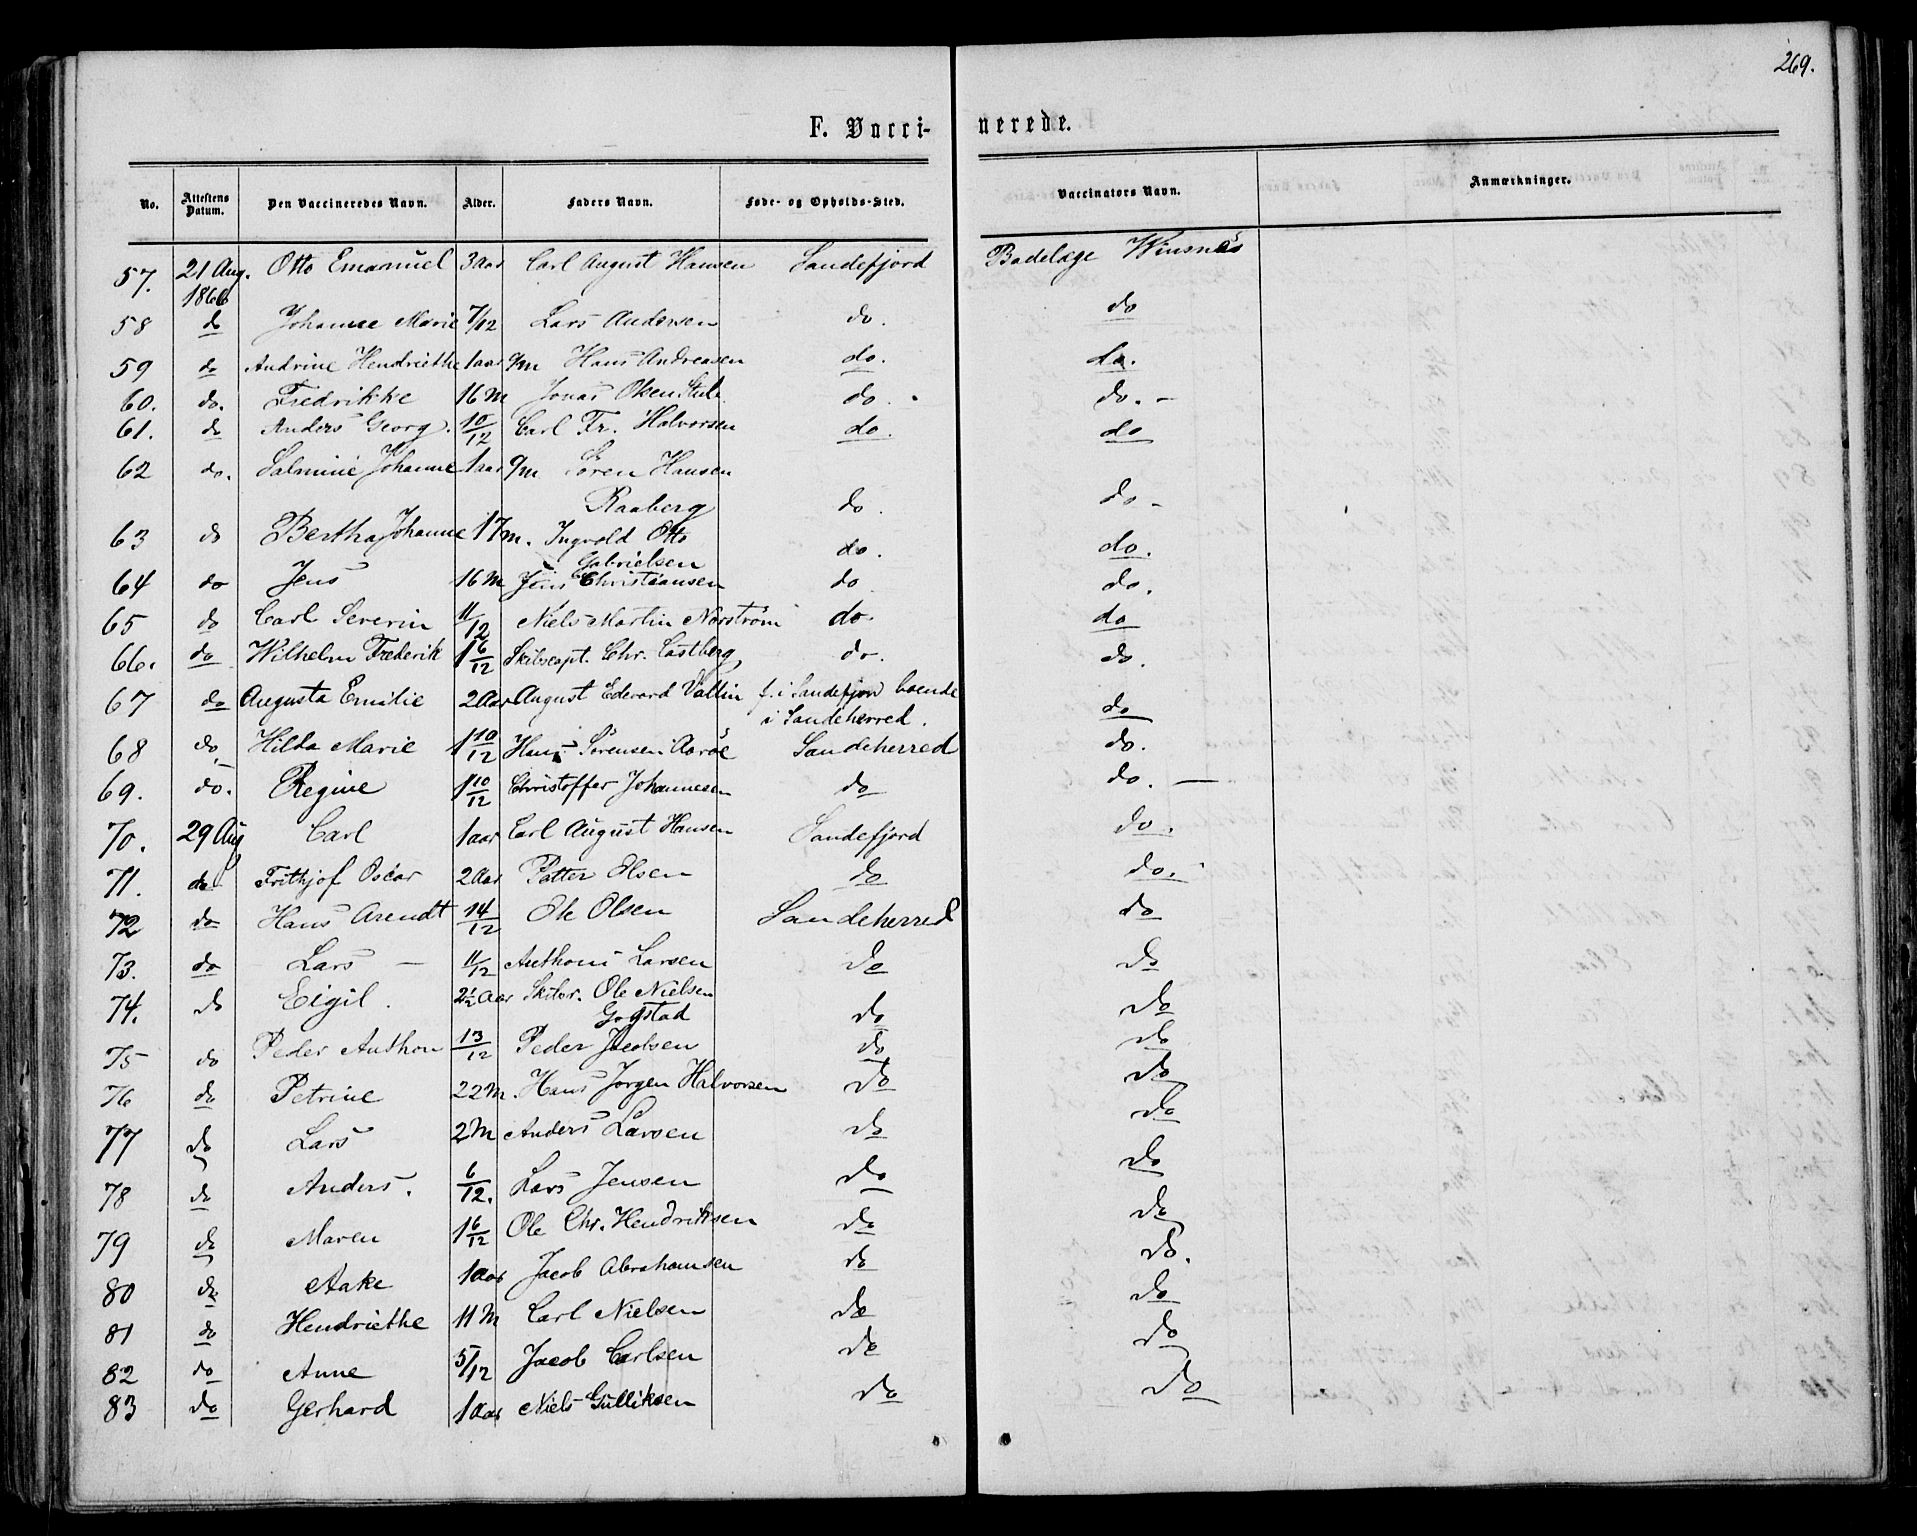 269.
F. Vacci- nerede.
No. Attestens Datum. Den Vaccineredes Navn. Alder. Faders Navn. Føde- og Opholds-Sted. Vaccinators Navn. Anmærkninger.
57. 21 Aug. 1866 Otto Emanuel 3 aar Carl August Hansen Sandefjord Badelæge
58 do Johanne Marie 7/12 Lars Andersen do. do
59 do Andrine Hendriethe 1 aar 9/m Hans Andreasen do. do.
60. do. Fredrikke 16 M Jonas Olsen do. do. -
61. do Anders Georg. 10/12 Carl Fr. Halvorsen do. do
62 do. Salmine Johanne 1 aar 9/m Søren Hansen
Raaberg do. do -
63 do Bertha Johanne 17 m. Ingvold Otto
Gabrielsen do. do.
64 do Jens 16 M Jens Christiansen do do.
65 do Carl Severin 11/12 Niels Martin Nørstrøm do. do
66. do Wilhelm Frederik 1 6/12 Skibscapt. Chr. Castberg, do. do.
67 do Augusta Emilie 2 Aar August Edevard Vallin f. i Sandefjord boende
i Sandeherred. do
68 do Hilda Marie 1 10/12 Hans Sørensen Aarøe Sandeherred do.
69. do. Regine 1 10/12 Christoffer Johannesen do do. —
70. 29 Aug Carl 1 aar Carl August Hansen Sandefjord do.
71. do Frithjof Oscar 2 Aar Petter Olsen do do.
72 do Hans Arendt 14/12 Ole Olsen Sandeherred do
73. do Lars — 11/12 Anthoni Larsen do do
74. do Eigil. 2½ Aar Skibsr. Ole Nielsen
Gogstad do do
75 do Peder Anthon 13/12 Peder Jacobsen do do
76 do Petrine 22 M. Hans Jørgen Halvorsen do do
77 do Lars 2 M Anders Larsen do do
78 do Anders. 6/12. Lars Jensen do do
79 do Maren 1 6/12 Ole Chr. Hendriksen do do
80 do Aake 1 aar Jacob Abrahamsen do do.
81 do Hendriethe 11 M Carl Nielsen do do
82 do Anne 5/12 Jacob Carlsen do do
83 do Gerhard 1 Aar Niels Gulliksen do do